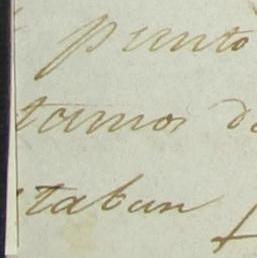 punto
tamos de
taban